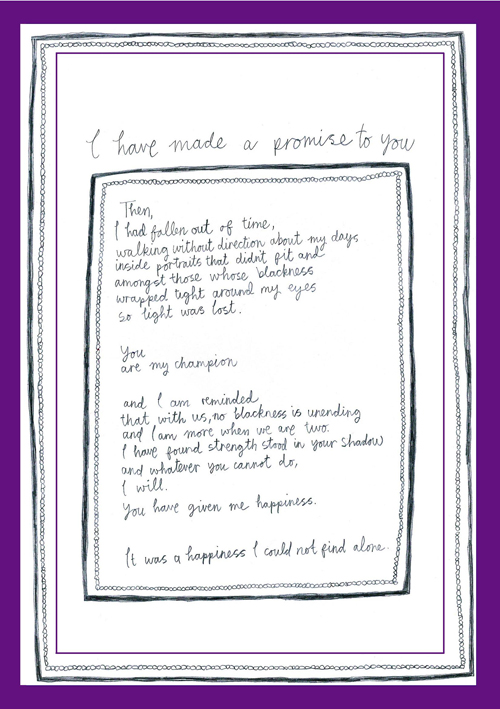 I have made a promise to you
Then,
I had fallen out of time,
walking without direction about my days
inside portraits that didn't fit and
amongst those whose blackness
wrapped tight around my eyes
so light was lost.
You
are my champion
and I am reminded
that with us, no blackness is unending
and I am more when we are two.
I have found strength stood in your shadow
and whatever you cannot do,
I will.
You have given me happiness.
It was a happiness I could not find alone.